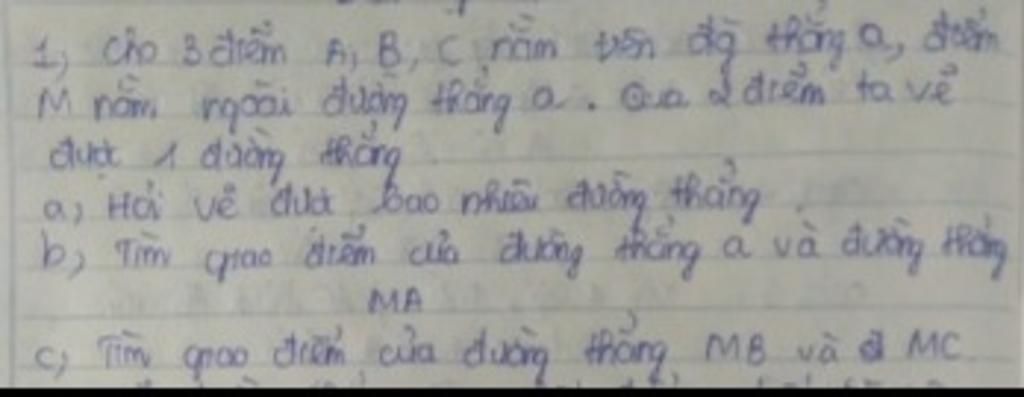 1, Cho 3 điểm A, B, C nằm trên đg thẳng a, điểm
M nằm ngoài đường thẳng a. Qua 2 điểm ta vẽ
được 1 đường thẳng
a, Hỏi vẽ được bao nhiêu đường thẳng
b, Tìm giao điểm của đường thẳng a và đường thẳng
MA
c, Tìm giao điểm của đường thẳng MB và MC.